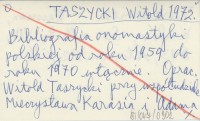 TASZYCKI Witold 1972.
Bibliografia onomastyki
polskiej od roku 1959 do
roku 1970 włącznie. Oprac.
Witold Taszycki przy współudziale
Mieczysława Karasia i Adama